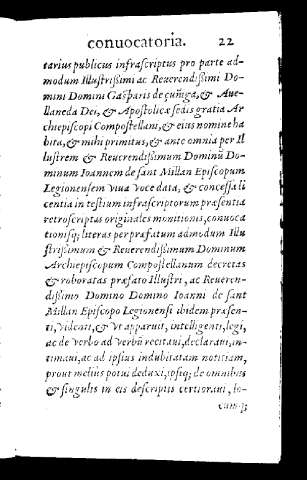 conuocatoria. 22
tarius publicus infrascriptus pro parte ad-
modum Illustrißimi ac Reuerendißimi Do-
mini Domini Gasparis de çuñiga, & Aue-
llaneda Dei, & Apostolicæ sedis gratia Ar
chiepiscopi Compostellani, & eius nomine ha
bita, & mihi primitus, & ante omnia per Il
lustrem & Reuerendißimum Dominũ Do-
minum Ioannem de sant Millan Episcopum
Legionensem viua voce data, & concessa li
centia in testium infrascriptorum præsentia
retroscriptas originales monitionis, conuoca
tionisq; literas per præfatum admodum Illu
strißimum & Reuerendißimum Dominum
Archiepiscopum Compostellanum decretas
& roboratas præfato Illustri, ac Reueren-
dißimo Domino Domino Ioanni de sant
Millan Episcopo Legionensi ibidem præsen-
ti, videnti, & vt apparuit, intelligenti, legi,
ac de verbo ad verbũ recitaui, declaraui, in-
timaui, ac ad ipsius indubitatam notitiam,
prout melius potui deduxi, ipsũq; de omnibus
& singulis in eis descriptis certioraui, lo-
cum q;